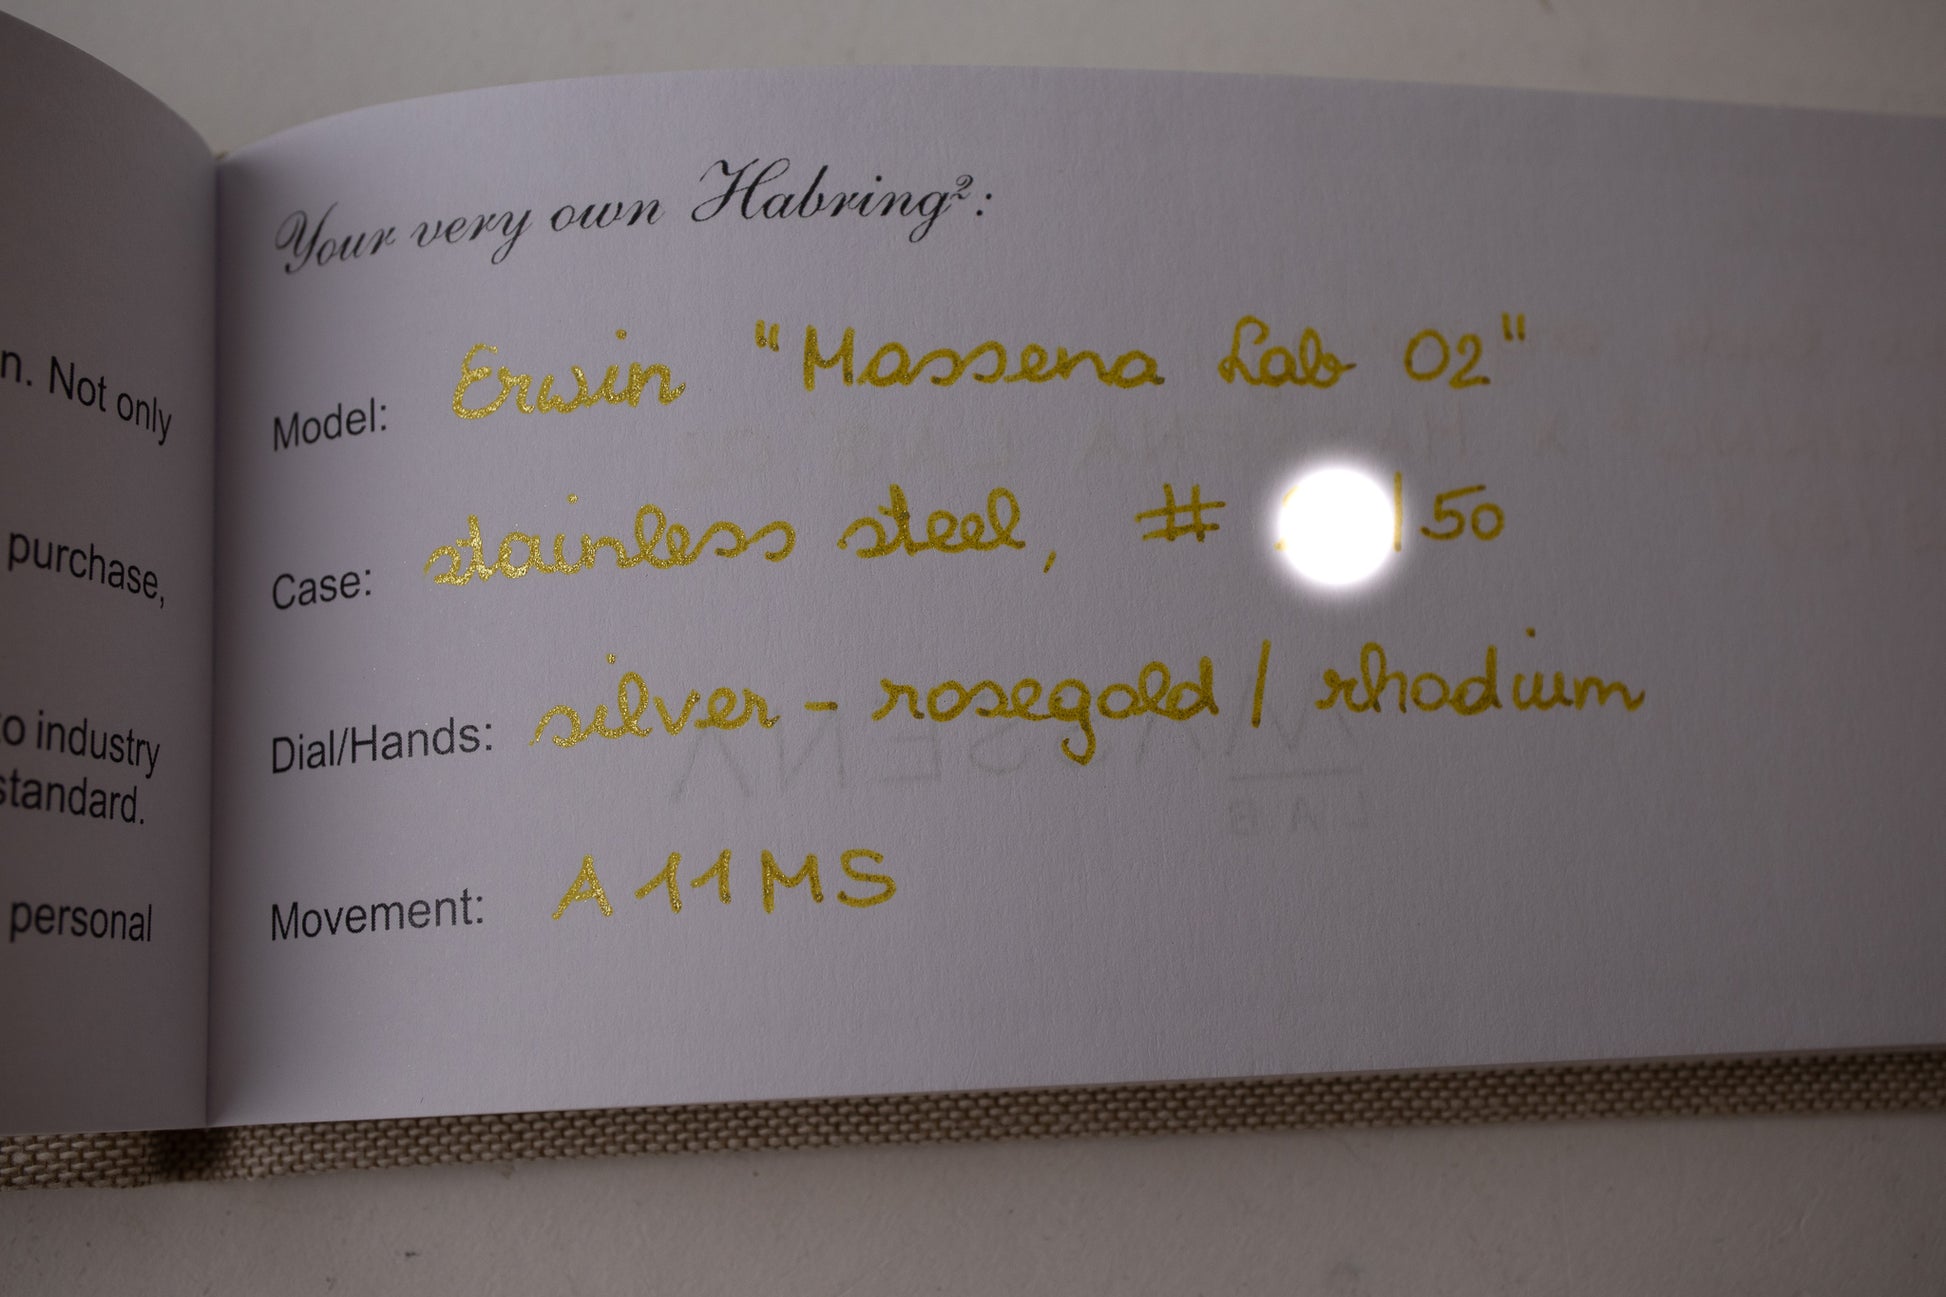 n. Not only
purchase,
to industry
standard.
personal
Your very own Habring²:
Model: Erwin "Massena Lab 02"
Case: stainless steel, # /50
Dial/Hands: silver - rosegold / rhodium
Movement: A11MS
MASSENA
LAB